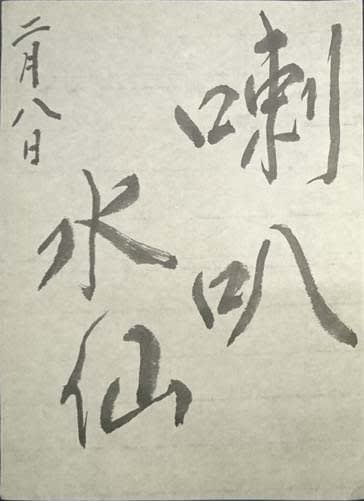 喇叭
水仙
二月八日